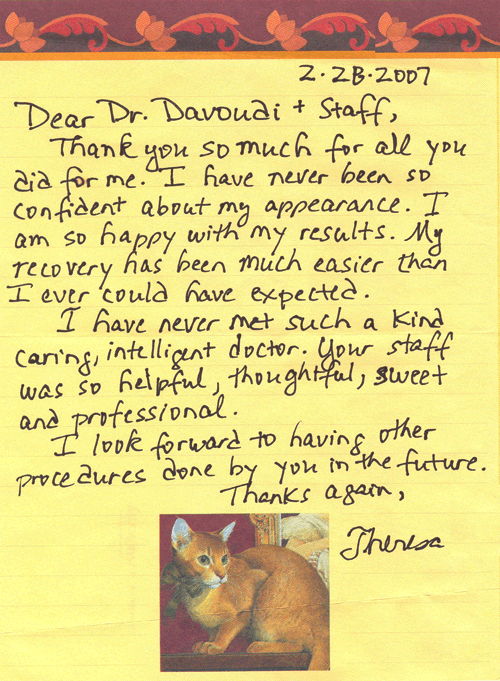 2.28.2007
Dear Dr. Davoudi + Staff,
Thank you so much for all you
did for me. I have never been so
confident about my appearance. I
am so happy with my results. My
recovery has been much easier than
I ever could have expected.
I have never met such a kind
caring, intelligent doctor. Your staff
was so helpful, thoughtful, sweet
and professional.
I look forward to having other
procedures done by you in the future.
Thanks again,
Theresa